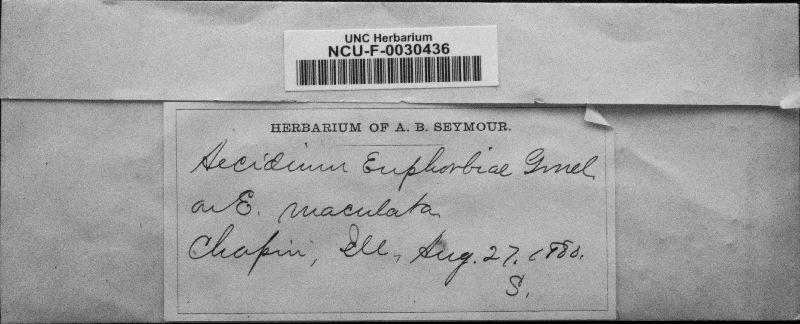 UNC Herbarium
NCU-F-0030436
HERBARIUM OF A. B. SEYMOUR.
Aecidium Euphorbiae Gmel.
on E. maculata
Chapin, Ill., Aug. 27, 1880.
S.